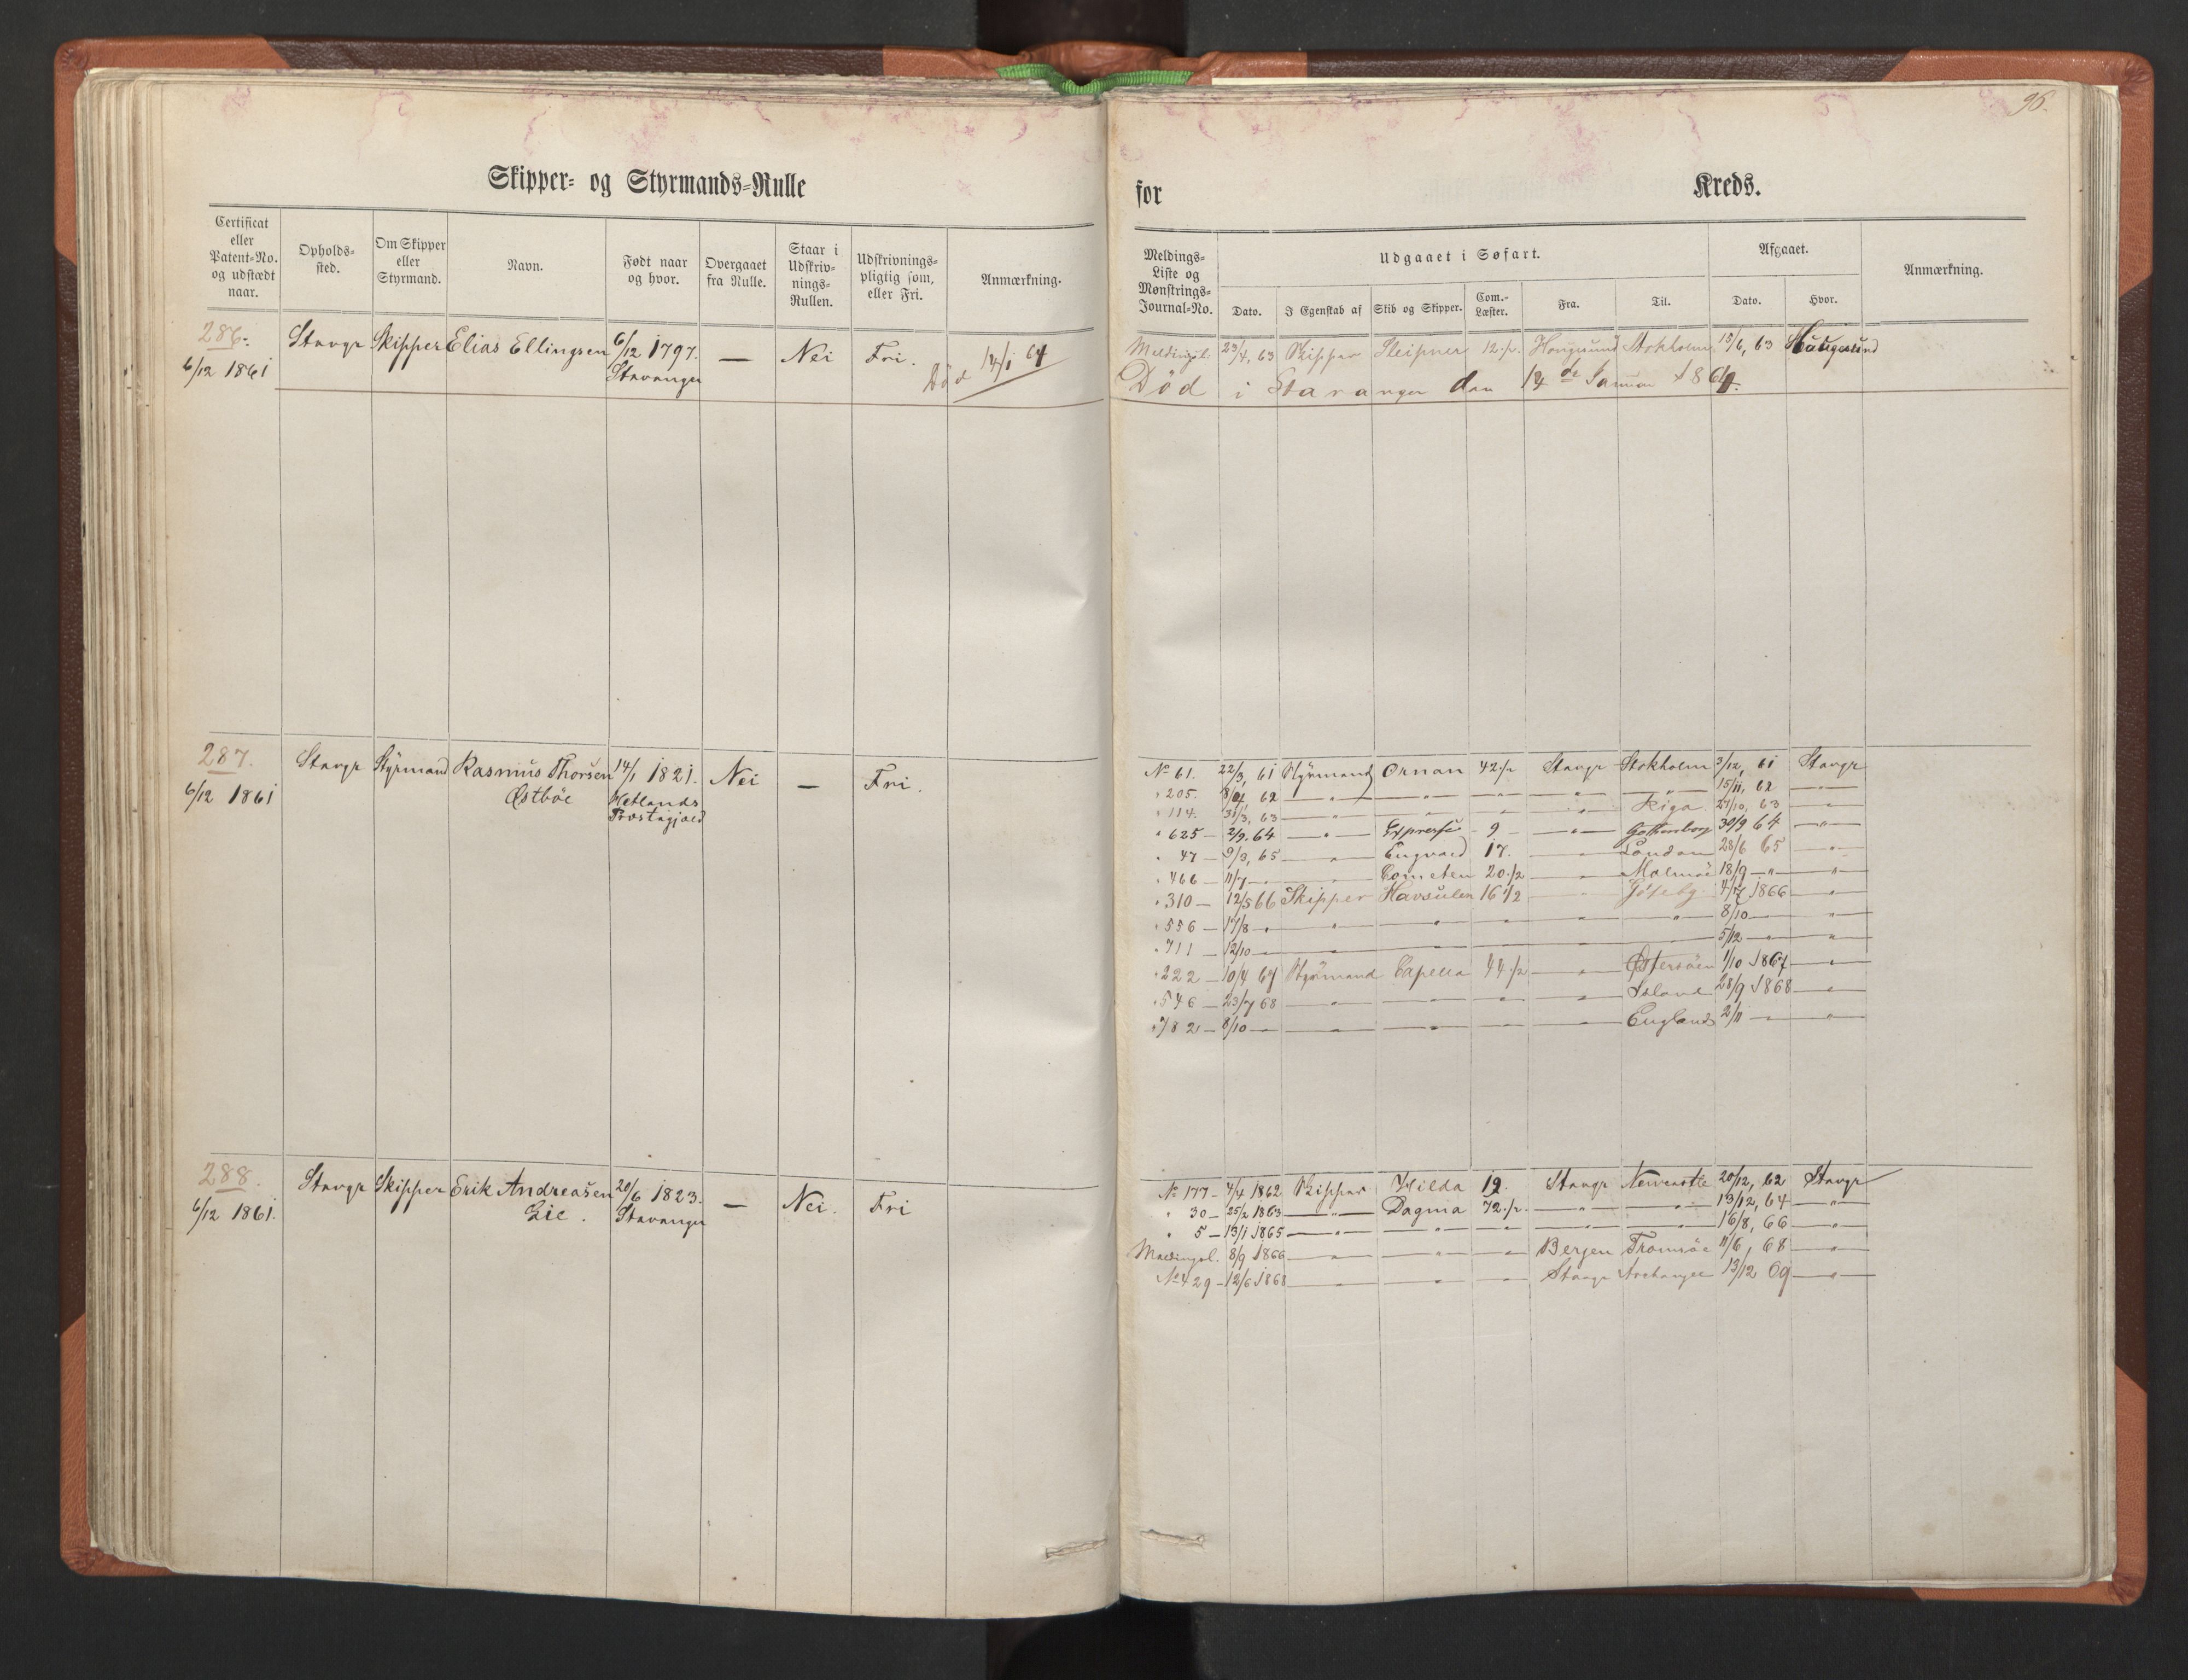 96.
Skipper- og Styrmands-Rulle
for Kreds.
Certificat eller Patent-No. og udstædt naar. Opholds-sted. Om Skipper eller Styrmand. Navn. Født naar og hvor. Overgaaet fra Rulle. Staar i Udskriv-nings-Rullen. Udskrivnings-pligtig som, eller Fri. Anmærkning.
Meldings-Liste og Mønstrings-Journal-No. Udgaaet i Søfart. Afgaaet. Anmærkning.
Dato. I Egenskab af Skib og Skipper. Com.-Læster. Fra. Til. Dato. Hvor.
286. Stavgr Skipper Elias Ellingsen 6/12 1797. — Nei Fri. Død 14/1 64
6/12 1861 Stavanger
Meldingsl. 23/4, 63 Skipper Sleipner 12 1/2 Haugesund Stokholm 15/6, 63 Haugesund
Død i Stavanger den 14de Januar 1864.
287. Stavgr Styrmand Rasmus Thorsen 14/1 1821. Nei — Fri.
6/12 1861 Østbøe Hetlands
Præstegjæld
No 61. 22/3, 61 Styrmand Ornan 42 1/2 Stavgr Stokholm 3/12, 61 Stavgr
" 205. 62 — " — — " — — " — — " — " 15/11, 62 — " —
" 114. 31/3, 63 — " — " " " Riga 27/10, 63 — " —
" 625 — 2/9. 64 — " — Expresse 9 — — " — Gothenborg 30/9 64 — " —
" 47 — 9/3, 65 — " — Engvald 17. — " — London 28/6 65 — " —
" 466 — 11/7 — " — " — Cometen 20 1/2 — " — Malmøe 18/9 — " — — " —
" 310 — 12/5 66 Skipper Havsulen 16 1/2 — " — Gøtebg 1866 — " —
" 556 — 17/8 — " — " — " — " — " — " 8/10 — "
" 711 — 12/10 — " — " — " — " — " — 5/12 — " — "
" 222 — 10/4 67 Styrmand Capella 44 1/2 — " — Østersøen 1/10 1867 — " —
" 546 — 23/7 68 — " — — " — — " — — " — Island 28/9 1868 — " —
" 782 — 8/10 — — " — — " — — " — — " — England 2/11 — " — — " —
288. Stavgr Skipper Erik Andreasen 20/6 1823. — Nei. Fri
6/12 1861. Gie. Stavanger
No 177 — 4/4 1862 Skipper Hilda 19. Stavgr Newcastle 20/12, 62 Stavgr
" 30 — 25/2 1863 — " — Dagma 72 1/2. — " — — " — 13/12, 64 — " —
" 5 — 13/1 1865 — " — — " — — " — — " — — " — 16/8, 66 — " —
Meldingsl. 8/9 1866 — " — — " — — " — Bergen Tromsøe 11/6, 68 — " —
No 429 — 12/6 1868 — " — — " — — " — Stavgr Archangel 13/12 69 — " —